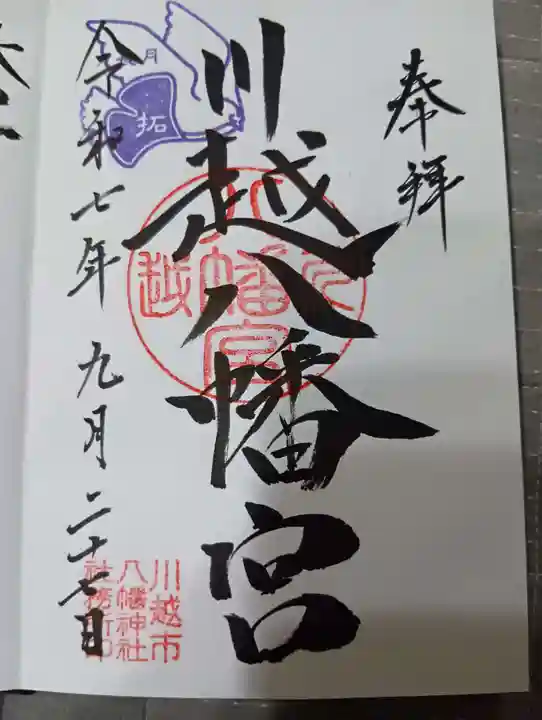 奉拝
川越八幡宮
令和七年九月二十七日
月
拓
川越
八幡宮
川越市
八幡神社
社務所印